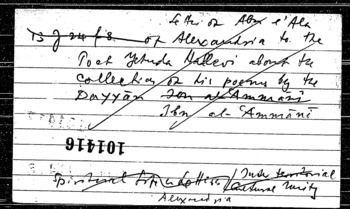 Letter of Abu l'Ala
of Alexandria to the
Poet Yehuda Hallevi about the
collection of his poems by the
Dayyān Ibn al-ʿAmmānī
Ibn al-ʿAmmānī
101416
Spiritual Life
Inter territorial
Cultural Unity
Alexandria